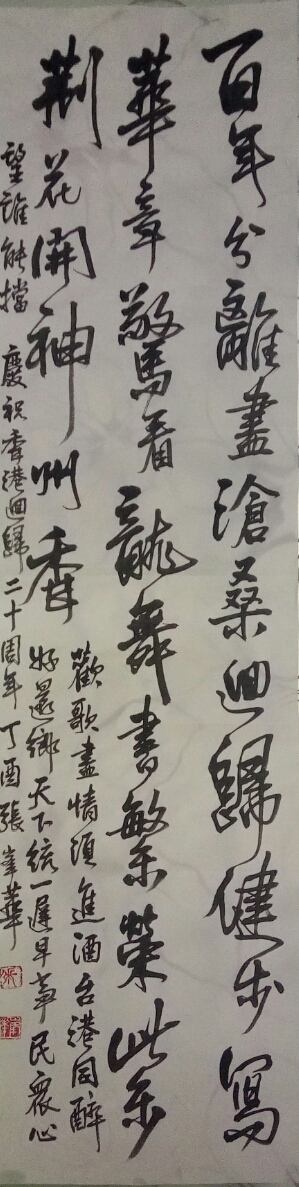 百年分離盡滄桑迴歸健步寫
華章驚看龍舞書繁榮紫
荊花開神州香
歡歌盡情須進酒台港同醉
好還鄉天下統一遲早事民衆心
望誰能擋 慶祝香港迴歸二十周年丁酉張峯華